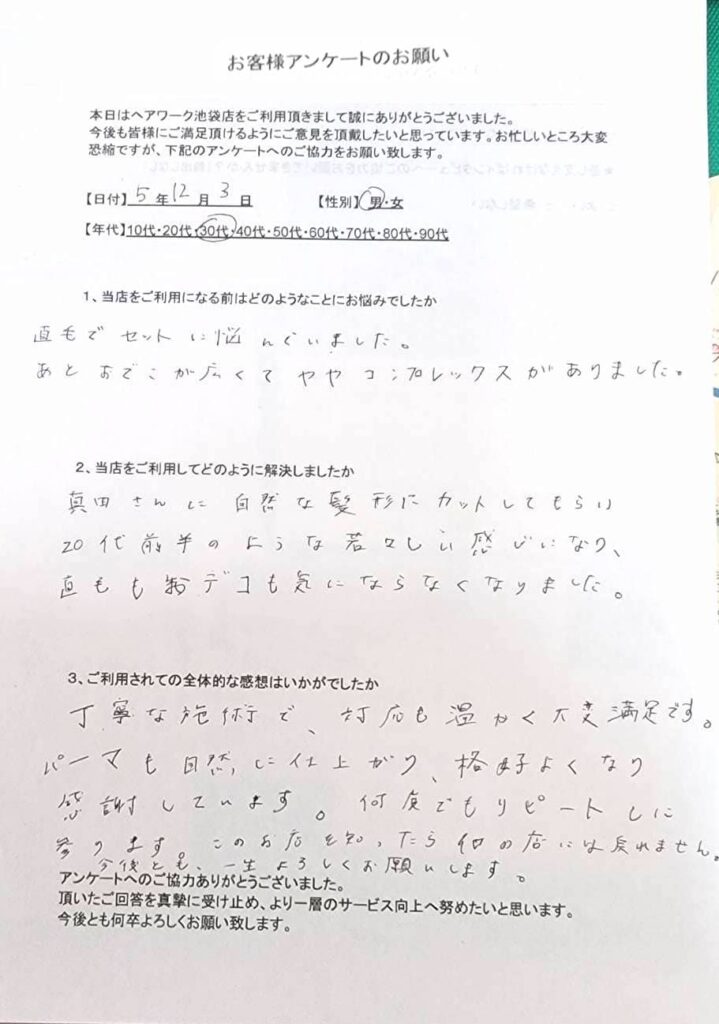 お客様アンケートのお願い
本日はヘアワーク池袋店をご利用頂きまして誠にありがとうございました。
今後も皆様にご満足頂けるようにご意見を頂戴したいと思っています。お忙しいところ大変
恐縮ですが、下記のアンケートへのご協力をお願い致します。
【日付】 5 年 12 月 3 日 【性別】 男・女
【年代】10代・20代・30代・40代・50代・60代・70代・80代・90代
1、当店をご利用になる前はどのようなことにお悩みでしたか
直毛でセットに悩んでいました。
あとおでこが広くてややコンプレックスがありました。
2、当店をご利用してどのように解決しましたか
真田さんに自然な髪形にカットしてもらい
20代前半のような若々しい感じになり、
直毛もおデコも気にならなくなりました。
3、ご利用されての全体的な感想はいかがでしたか
丁寧な施術で、対応も温かく大変満足です。
パーマも自然に仕上がり、格好よくなり
感謝しています。何度でもリピートしに
参ります。このお店を知ったら他の店には戻れません。
今後とも、一生よろしくお願いします。
アンケートへのご協力ありがとうございました。
頂いたご回答を真摯に受け止め、より一層のサービス向上へ努めたいと思います。
今後とも何卒よろしくお願い致します。